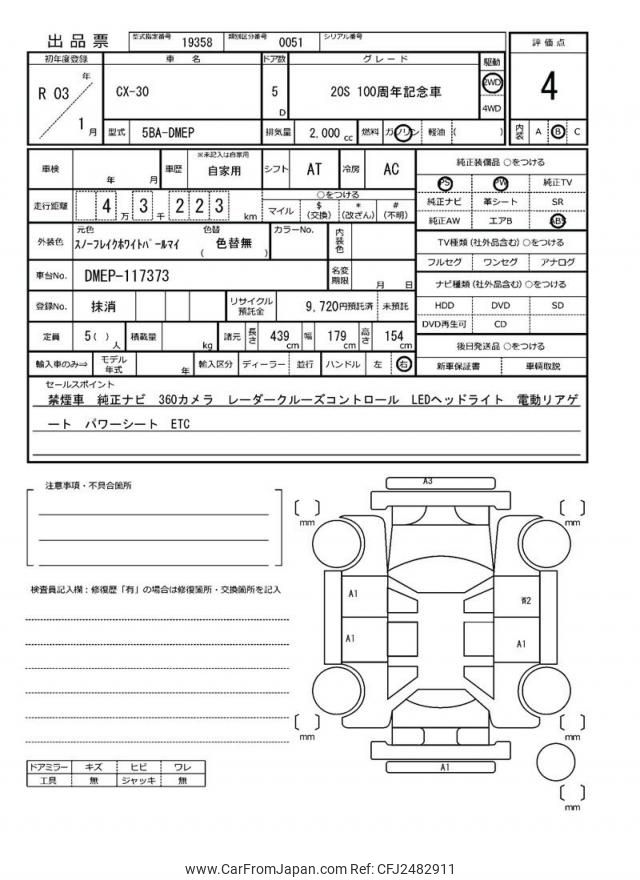 出品票 型式指定番号 19358 類別区分番号 0051 シリアル番号
初年度登録 車名 ドア数 グレード 駆動 評価点
R 03 年 1 月 CX-30 5 D 20S 100周年記念車 2WD 4WD 4
型式 5BA-DMEP 排気量 2,000 cc 燃料 ガソリン 軽油 ( ) 内装 A B C
車検 年 月 車歴 ※未記入は自家用 自家用 シフト AT 冷房 AC 純正装備品 ○をつける
PS PW 純正TV
走行距離 4 万 3 千 2 2 3 km ○をつける マイル $ (交換) * (改ざん) # (不明) 純正ナビ 革シート SR
純正AW エアB ABS
外装色 元色 スノーフレイクホワイトパールマイ 色替 ( 色替無 ) カラーNo. 内装色 TV種類 (社外品含む) ○をつける
フルセグ ワンセグ アナログ
車台No. DMEP-117373 名変期限 月 日 ナビ種類 (社外品含む) ○をつける
登録No. 抹消 リサイクル預託金 9,720円預託済 未預託 HDD DVD SD
DVD再生可 CD
定員 5( ) 人 積載量 kg 諸元 長さ 439 cm 幅 179 cm 高さ 154 cm 後日発送品 ○をつける
輸入車のみ⇒ モデル年式 年 輸入区分 ディーラー 並行 ハンドル 左 右 新車保証書 車輌取説
セールスポイント
禁煙車 純正ナビ 360カメラ レーダークルーズコントロール LEDヘッドライト 電動リアゲ
ート パワーシート ETC
注意事項・不具合箇所
検査員記入欄：修復歴「有」の場合は修復箇所・交換箇所を記入
A3
mm
mm
A1
W2
A1
A1
mm
mm
A1
mm
ドアミラー キズ ヒビ ワレ
工具 無 ジャッキ 無
www.CarFromJapan.com Ref: CFJ2482911